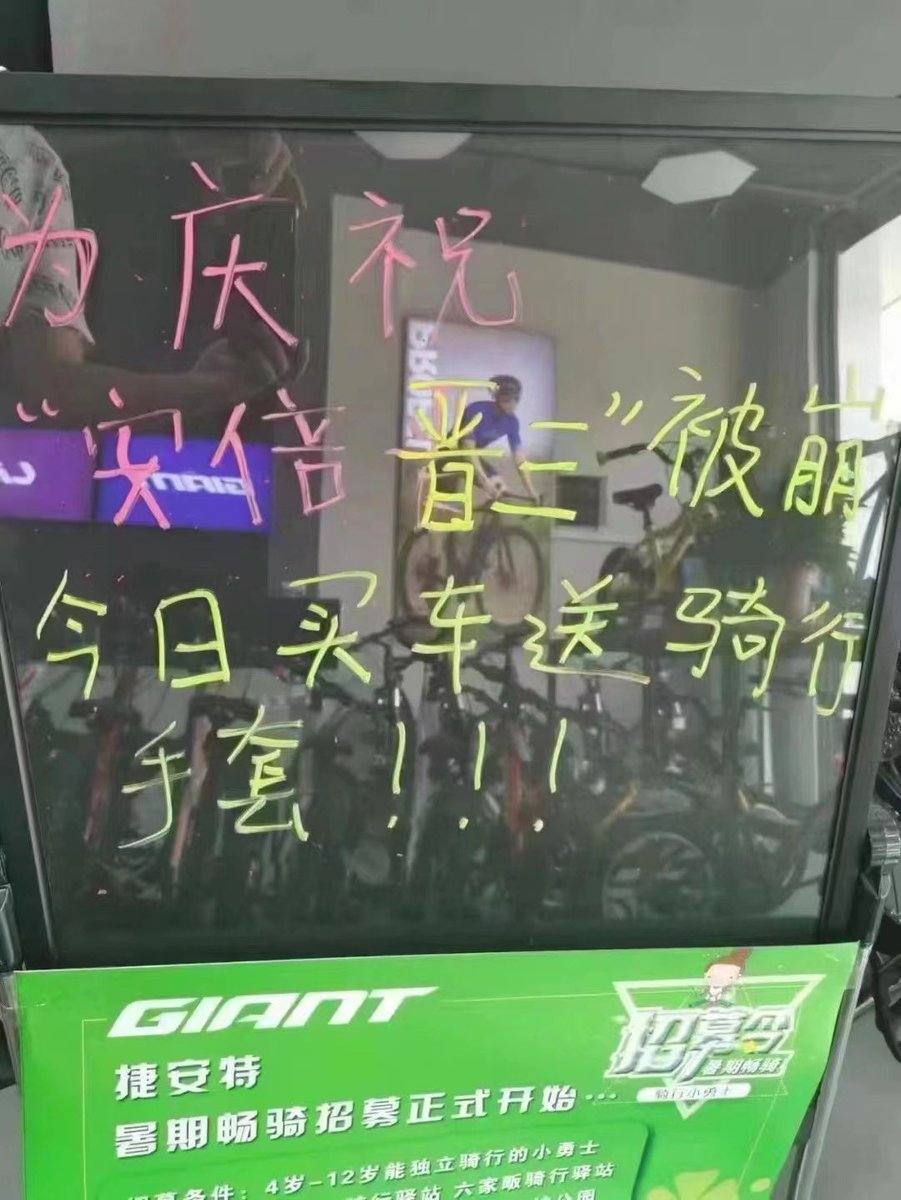 为庆祝
“安倍晋三”被崩
今日买车送骑行
手套!!!
GIANT
捷安特
暑期畅骑招募正式开始…
招募令
暑期畅骑
骑行小勇士
招募条件：4岁-12岁能独立骑行的小勇士
骑行驿站 六家畈骑行驿站
GIANT